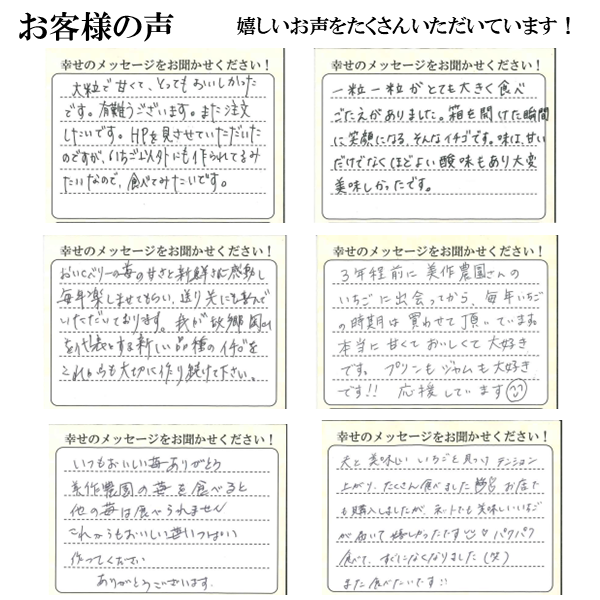 お客様の声
嬉しいお声をたくさんいただいています！
幸せのメッセージをお聞かせください！
大粒で甘くて、とってもおいしかった
です。有難うございます。また注文
したいです。HPを見させていただいた
のですが、いちご以外にも作られてるみ
たいなので、食べてみたいです。
幸せのメッセージをお聞かせください！
一粒一粒がとても大きく食べ
ごたえがありました。箱を開けた瞬間
に笑顔になる、そんなイチゴです。味は、甘い
だけでなくほどよい酸味もあり大変
美味しかったです。
幸せのメッセージをお聞かせください！
おいCベリーの苺の甘さと新鮮さに感動し
毎年楽しませてもらい、送り先にも喜んで
いただいております。我が故郷岡山
を代表とする新しい品種のイチゴを
これからも大切に作り続けて下さい。
幸せのメッセージをお聞かせください！
3年程前に美作農園さんの
いちごに出会ってから、毎年いちご
の時期は買わせて頂いています。
本当に甘くておいしくて大好き
です。プリンもジャムも大好き
です!! 応援しています
幸せのメッセージをお聞かせください！
いつもおいしい苺ありがとう
美作農園の苺を食べると
他の苺は食べられません
これからもおいしい苺いっぱい
作ってください
ありがとうございます.
幸せのメッセージをお聞かせください！
夫と美味しいいちごを見つけテンション
上がり、たくさん食べました お店で
も購入しましたが、ネットでも美味しいいちご
が届いて嬉しかったです パクパク
食べて、すぐになくなりました(笑)
また食べたいです!!